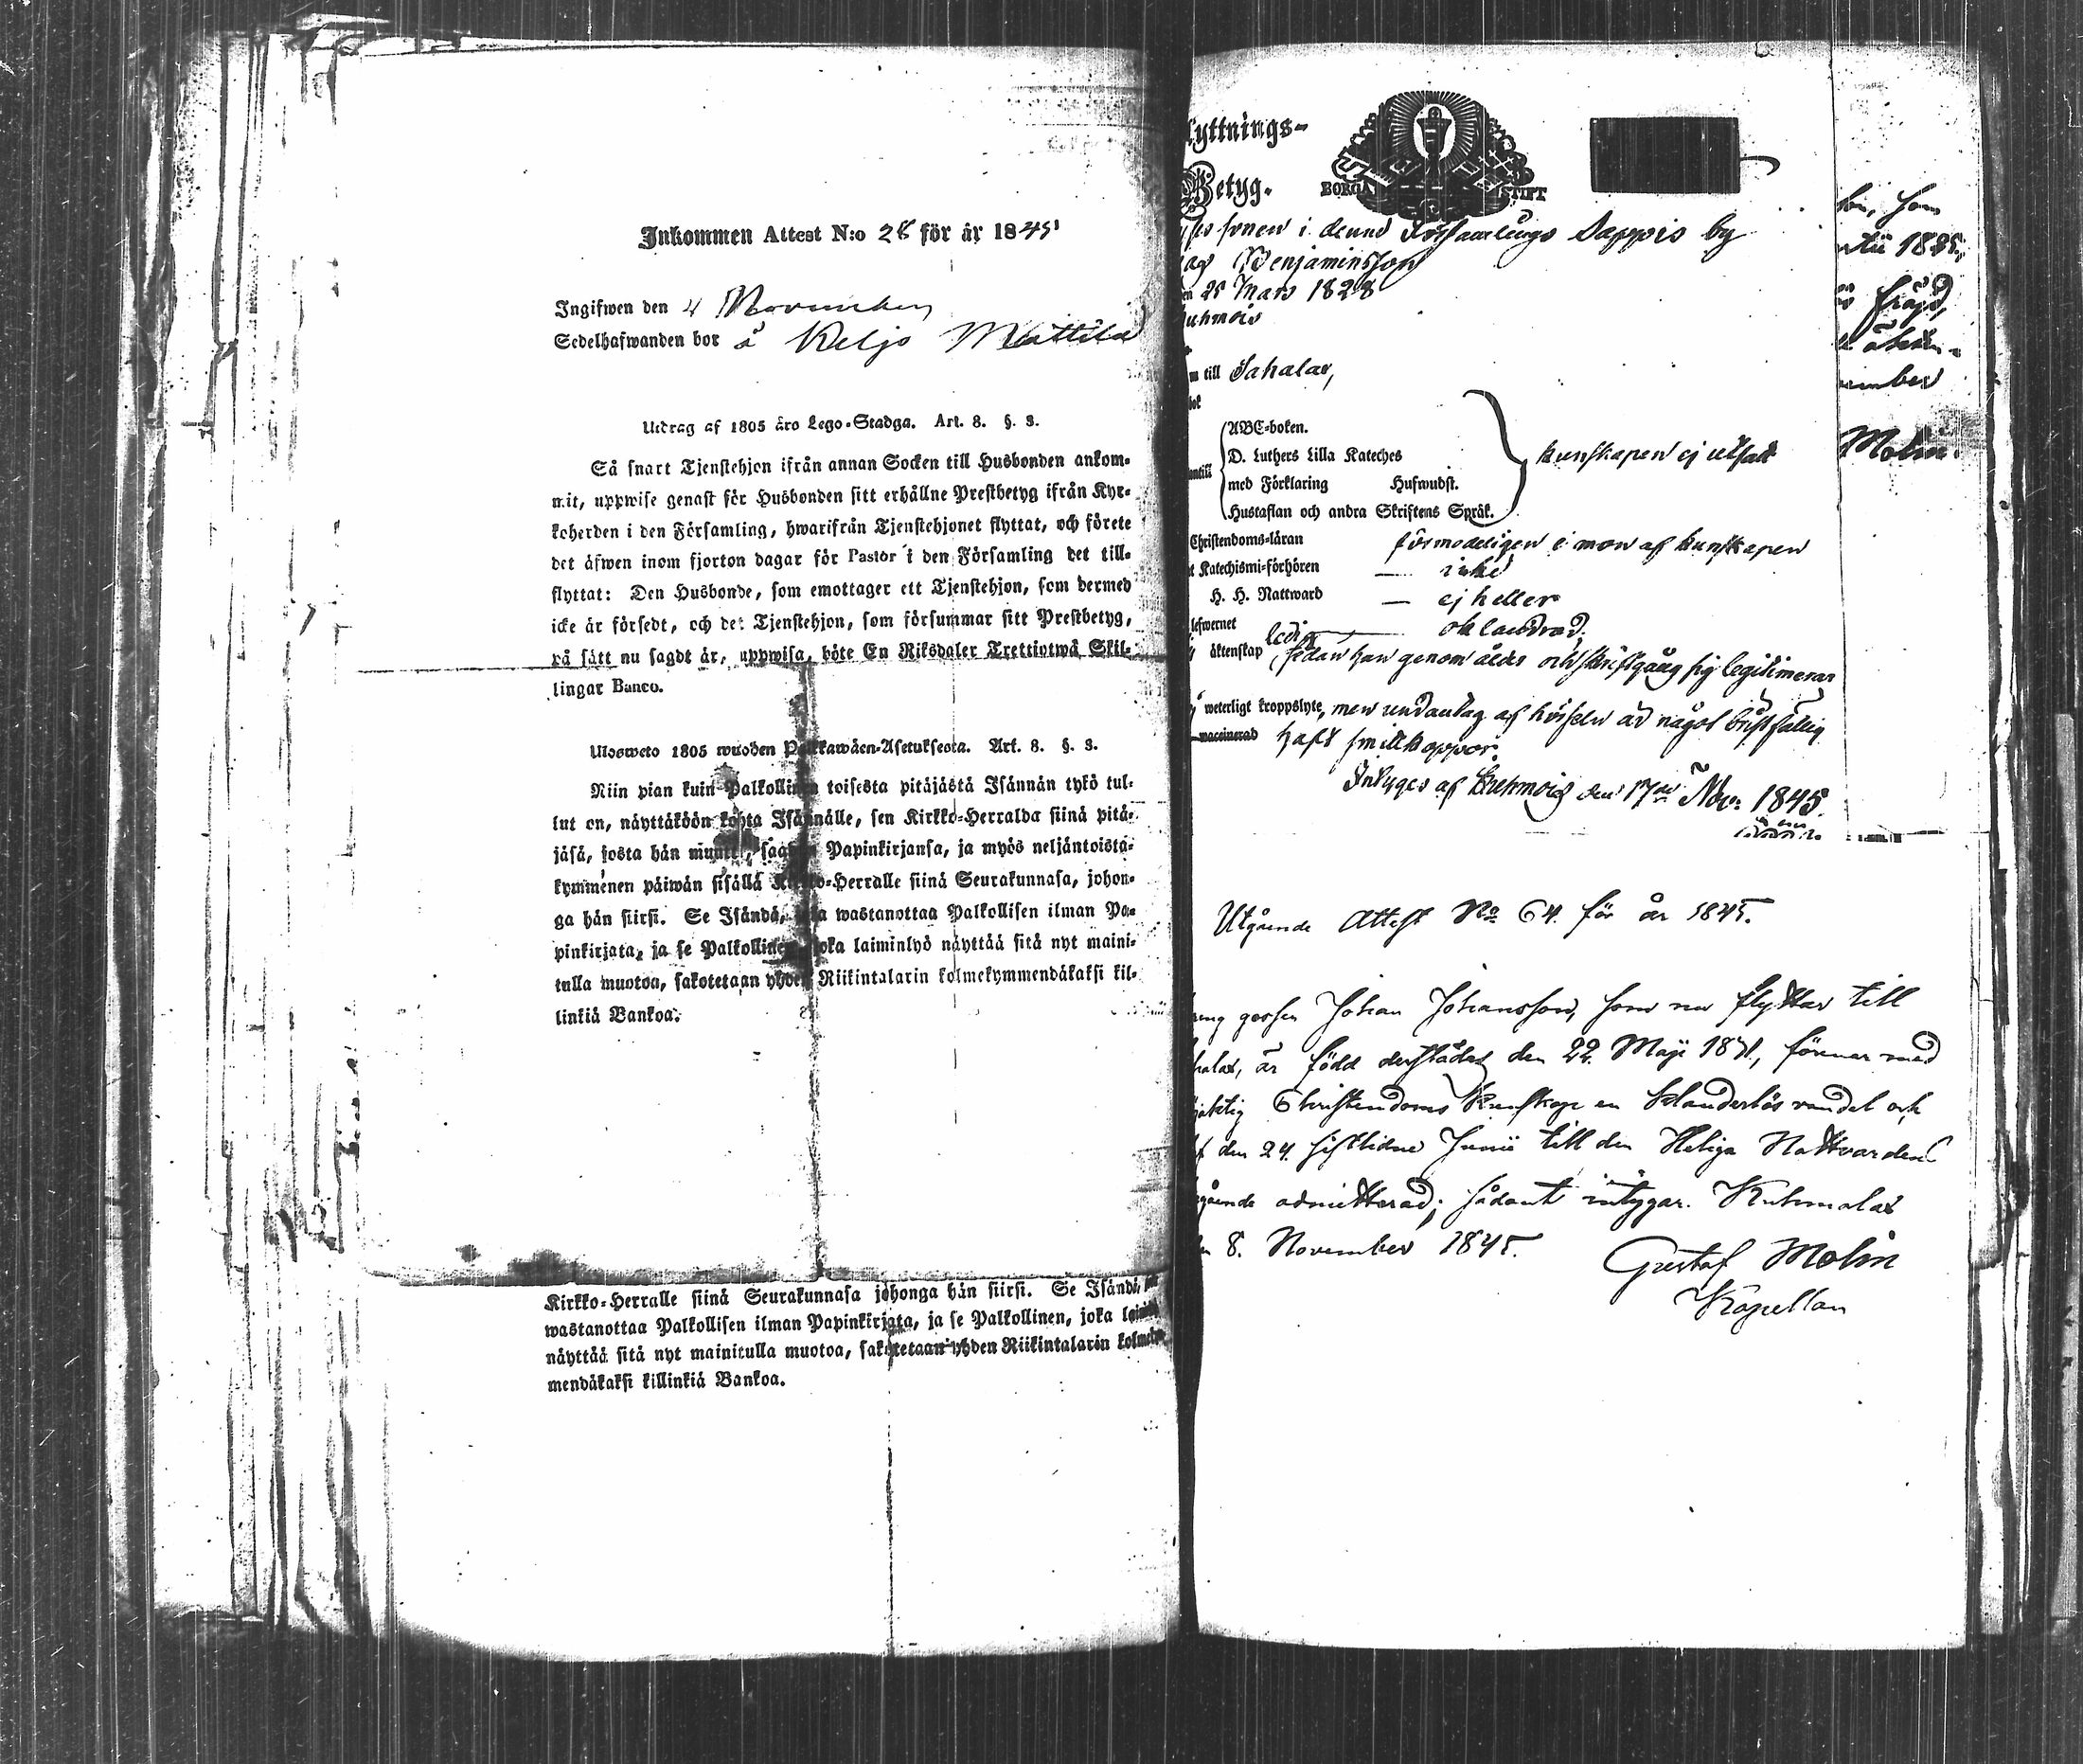 Inkommen Attest N:o 28 för år 1845
Ingifwen den 4 November
Sedelhafwanden bor å Keljo Mattila
Utdrag af 1805 åro Lego-Stadga. Art. 8. §. 3.
Så snart Tjenstehjon ifrån annan Socken till Husbonden ankom-
mit, uppwise genast för Husbonden sitt erhållne Prestbetyg ifrån Kyr-
koherden i den Församling, hwarifrån Tjenstehjonet flyttat, och förete
det äfwen inom fjorton dagar för Pastor i den Församling det till-
flyttat: Den Husbonde, som emottager ett Tjenstehjon, som dermed
icke är försedt, och det Tjenstehjon, som försummar sitt Prestbetyg,
på sätt nu sagdt är, uppwisa, böte En Riksdaler Trettiotwå Skil-
lingar Banco.
Ulosweto 1805 wuoden Palkkawäen-Asetuksesta. Art. 8. §. 3.
Niin pian kuin Palkollinen toisesta pitäjästä Isännän tykö tul-
lut on, näyttäköön kohta Isännälle, sen Kirkko-Herralda siinä pitä-
jäsä, josta hän muutti, Papinkirjansa, ja myös neljäntoista-
kymmenen päiwän sisällä Kirkko-Herralle siinä Seurakunnasa, johon-
ga hän siirsi. Se Isändä, joka wastanottaa Palkollisen ilman Pa-
pinkirjata, ja se Palkollinen, joka laiminlyö näyttää sitä nyt maini-
tulla muotoa, sakotetaan yhden Riikintalarin kolmekymmendäkaksi kil-
linkiä Bankoa.
Kirkko-Herralle siinä Seurakunnasa johonga hän siirsi. Se Isändä,
wastanottaa Palkollisen ilman Papinkirjata, ja se Palkollinen, joka
näyttää sitä nyt mainitulla muotoa, sakotetaan yhden Riikintalarin
mendäkaksi killinkiä Bankoa.
lyttnings-
Betyg.
BORGÅ STIFT
sonen i denna Församlings Sappis by
Benjaminsson
25 Mars 1828
uhmois
m till Sahalax,
ABC-boken.
D. Luthers Lilla Kateches
med Förklaring Hufwudst.
Hustaflan och andra Skriftens Språk.
kunskapen ej utsatt
Christendoms-läran förmodeligen i mon af kunskapen
t Katechismi-förhören — icke
H. H. Nattward — ej heller
lefwernet oklandrad
äktenskap ledig sedan han genom ålder och skriftgång sig legitimerar
weterligt kroppslyte, men undantag af hörseln är något bristfällig
vaccinerad haft smittkoppor.
Intyges af Kuhmois den 17de Nov: 1845.
bi, som
1825,
frägd,
ember
Molin
Utgående Attest No 64. för år 1845.
gossen Johan Johansson, som nu flyttar till
halax, är född derstädes den 22. Maji 1831, förenar med
Christendoms Kunskap en klanderlös vandel och
den 24. sistlidne Junii till den Heliga Nattvardens
gående admitterad; sådant intygar. Kuhmalax
8. November 1845. Gustaf Molin
Kapellan